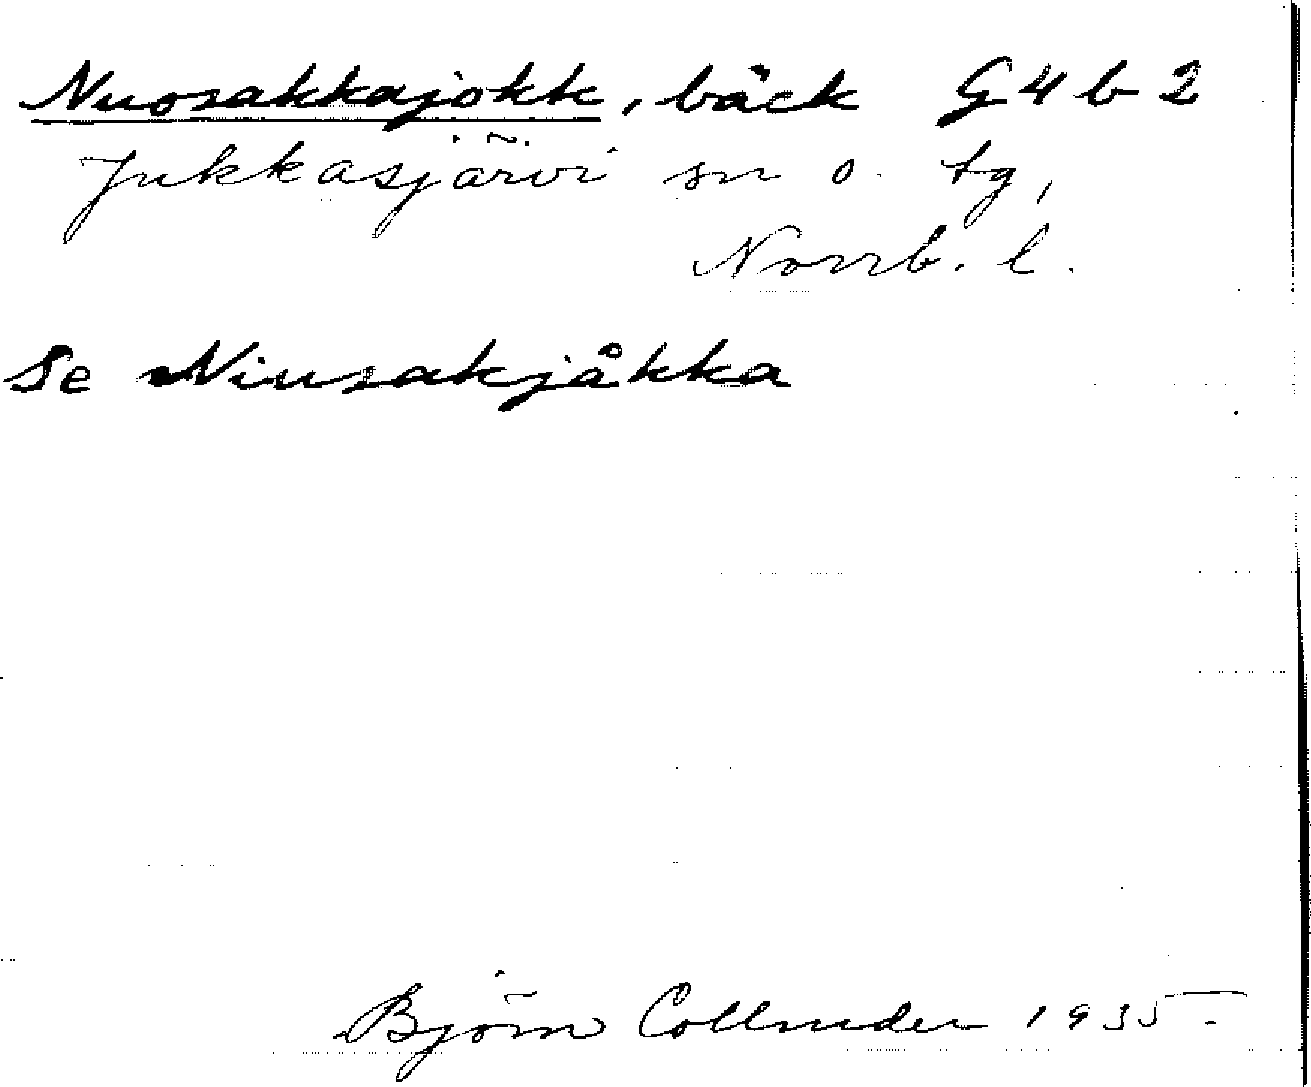 Nuosakkajokk, bäck G 4 b 2
Jukkasjärvi sn o. tg,
Norrb. l.
Se Niusakjåkka
Björn Collinder 1935